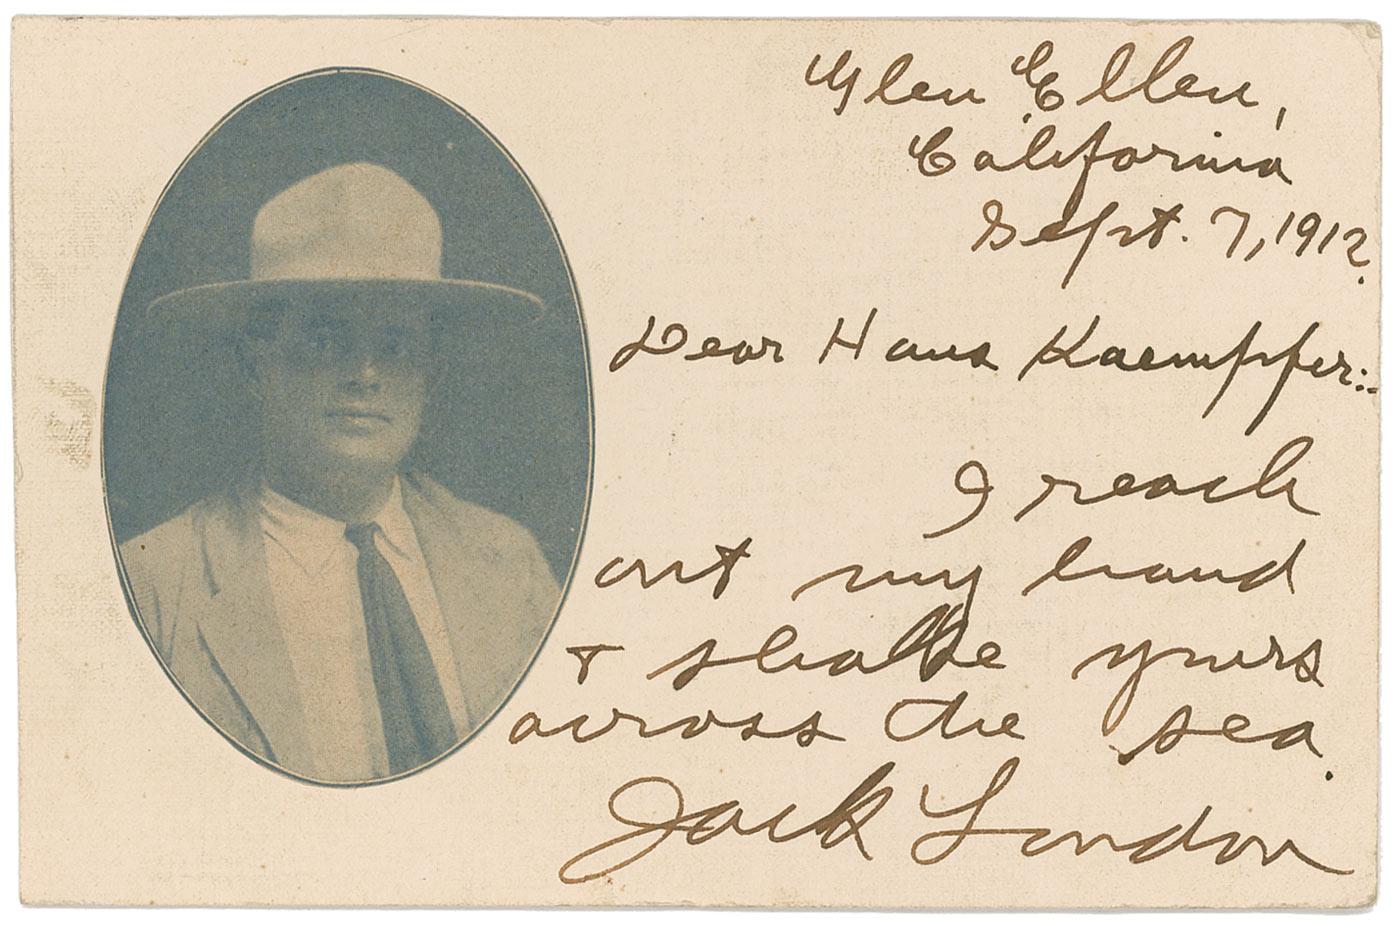 Glen Ellen,
California
Sept. 7, 1912.
Dear Hans Kaempfer:-
I reach
out my hand
+ shake yours
across the sea.
Jack London